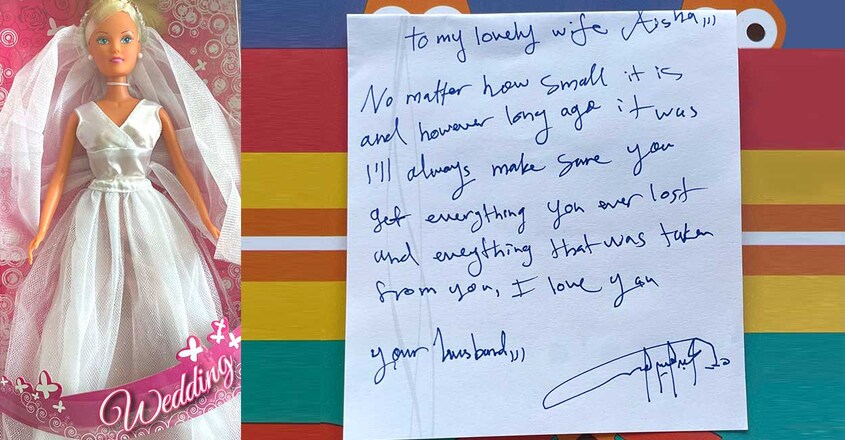 Wedding
to my lovely wife Aisha,,,
No matter how small it is
and however long ago it was
I'll always make sure you
get everything you ever lost
and eveything that was taken
from you, I love you
your husband,,,